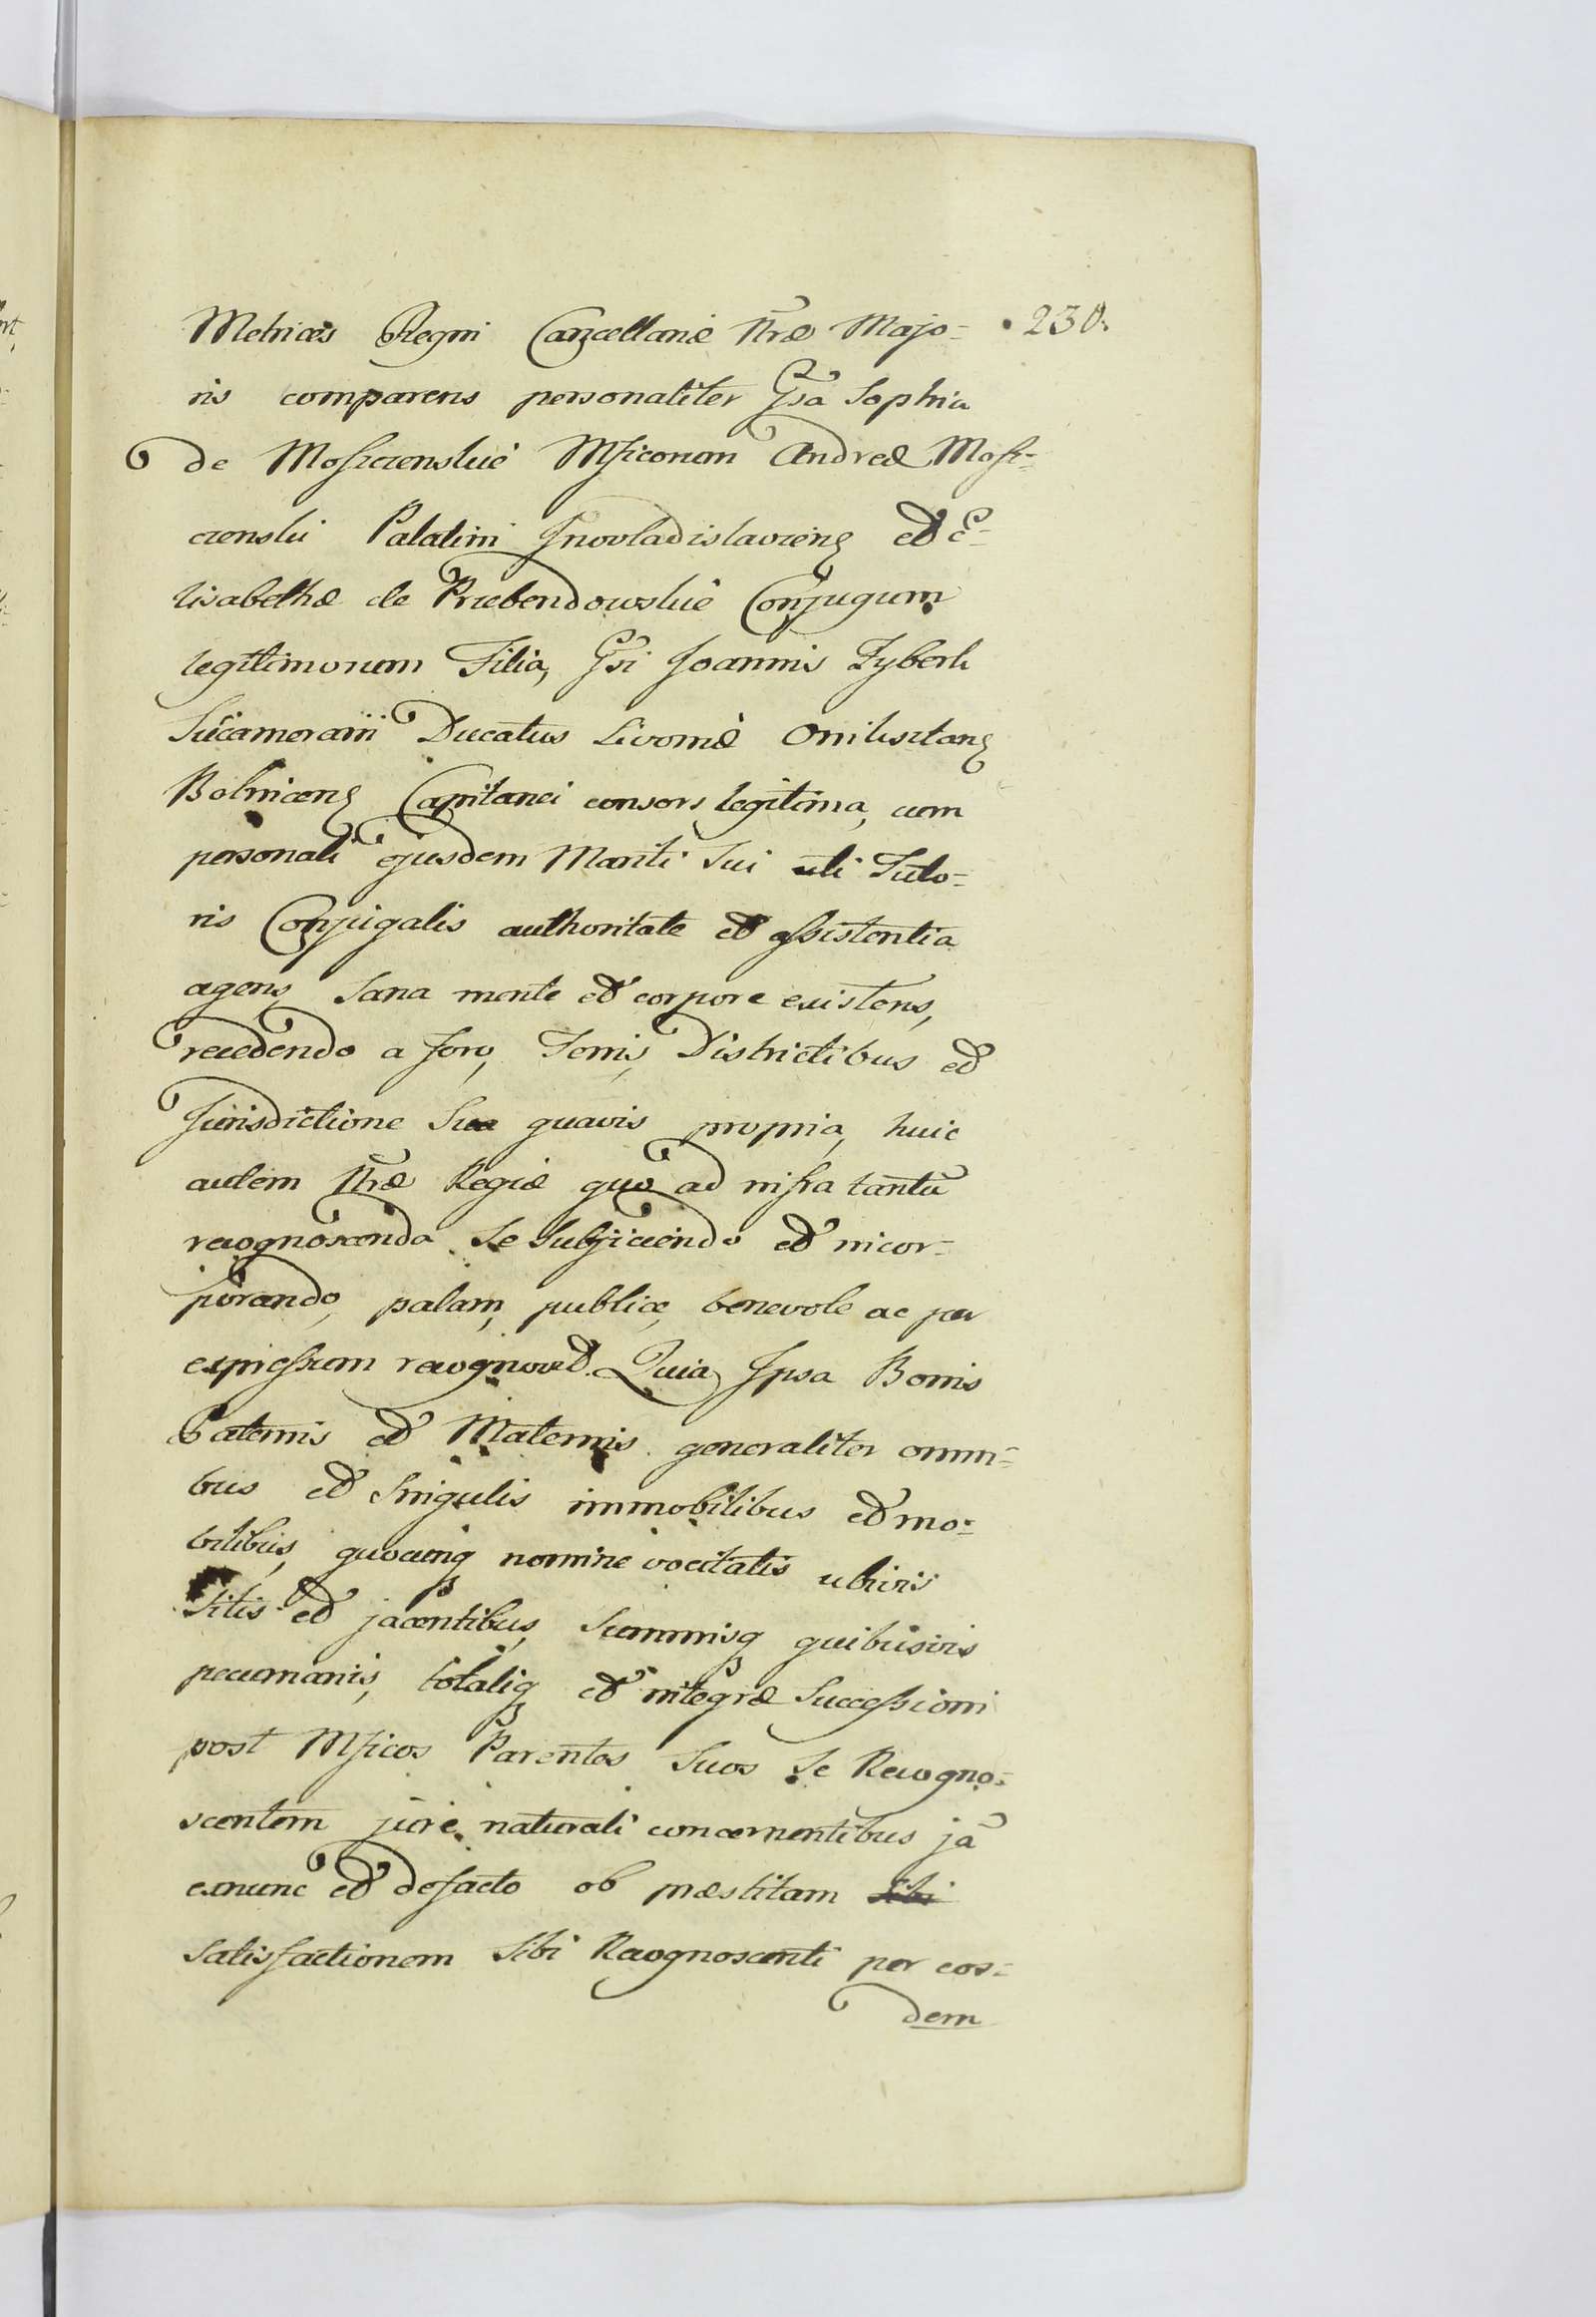 Metrices Regni Cancellariæ Nrae Majo= 230.
ris comparens personaliter Gsa Sophia
de Moszczenskie Mficorum Andreæ Mosz=
czenski Palatini Inowladislaviens et E=
lisabethæ de Przebendowskie Conjugum
legitimorum Filia, Gsi Joannis Zyberk
Succamerarii Ducatus Livoniæ
Bolnicens Capitanei consors legitima, cum
personali ejusdem Mariti Sui uti Tuto=
ris Conjugalis authoritate et assistentia
agens, Sana mente et corpore existens,
recedendo a foro, Terris, Districtibus et
Jurisdictione Sua quavis propria, huic
autem Nræ Regiæ quo ad infra tantu
recognoscenda Se Subjiciendo et incor=
porando, palam, publice, benevole ac per
expressum recognovit. Quia Ipsa Bonis
Paternis et Maternis generaliter omni=
bus et Singulis immobilibus et mo=
bilibus, quocunq nomine vocitatis ubivis
Sitis et jacentibus, Summisq quibusvis
pecuniariis, totaliq et integræ Successioni
post Mficos Parentes Suos Se Recogno=
scentem jure naturali concernentibus ja
exnunc et defacto ob præstitam Sibi
Satisfactionem Sibi Recognoscenti per eos=
dem